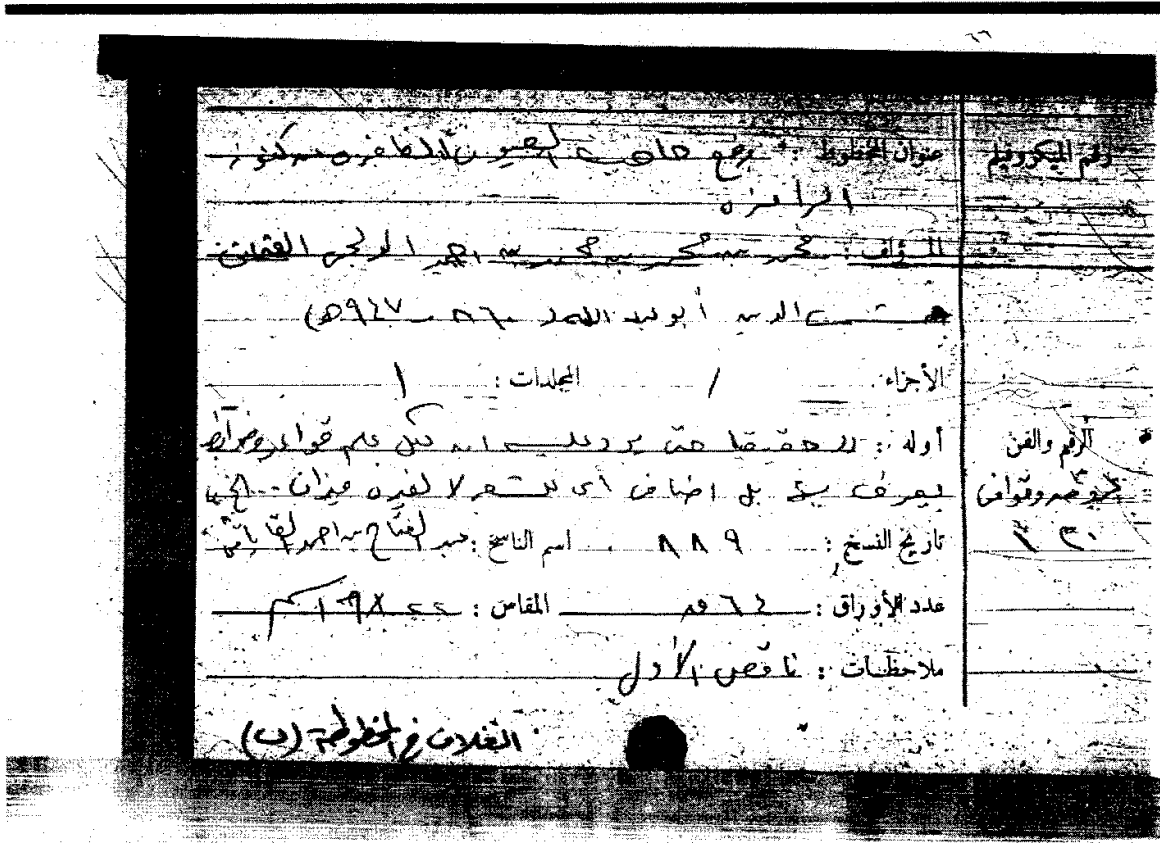 ٦٦
رقم الميكروفيلم
عنوان المخطوط : رفع حاجب العيون الغامزه عن كنوز
الرامزه
المؤلف : محمد بن محمد بن محمد بن احمد الدلجى العثمانى
شمس الدين أبو عبد الله (٨٦٠ - ٩٤٧ه)
الأجزاء : ١ المجلدات : ١
الرقم والفن
عروض وقوافى
٣٠
أوله : حقيقيا حتى يرد عليه ان لكل علم قواعد وضوابط
يعرف بل اضافى أى للشعر لا لغيره ميزان .. الخ
تاريخ النسخ : ٨٨٩ اسم الناسخ : عبد الفتاح بن احمد القاياتى
عدد الأوراق : ٦٤ المقاس : ٢٢ × ١٦ سم
ملاحظات : ناقص الأول
الغلاف فى المخطوطة (ب)